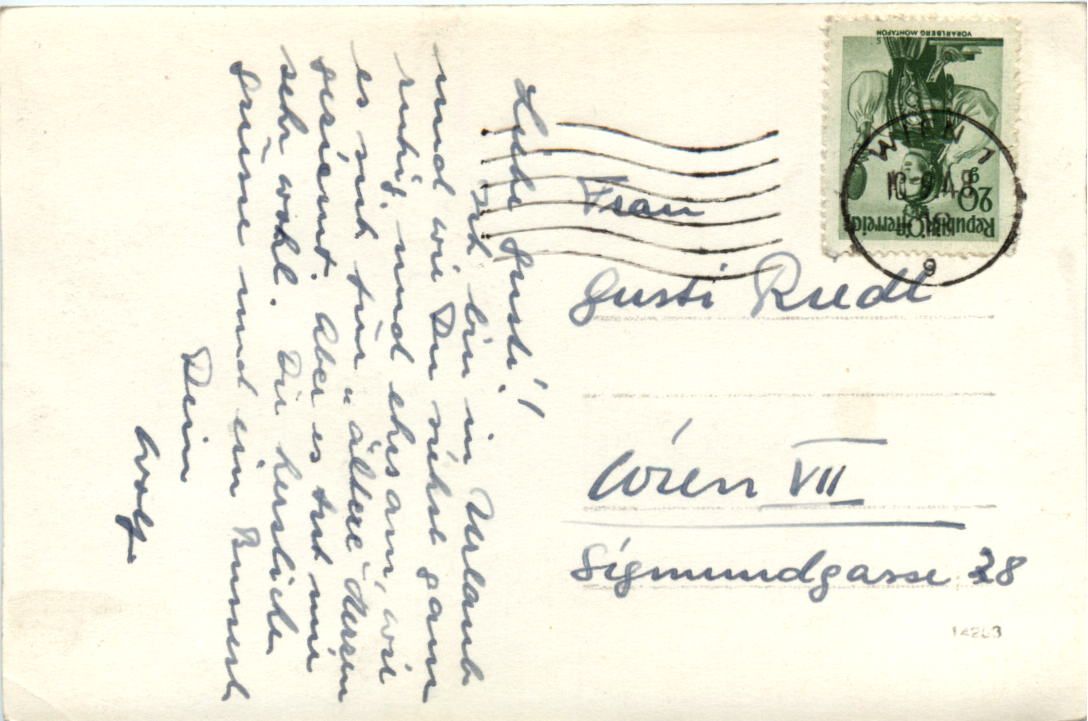 Liebe Gusti!
Ich bin in Urlaub
und wie Du siehst ganz
ruhig und ehrsam, wie
es sich für "ältere" Herren
geziemt. Aber es tut mir
sehr wohl. Dir herzliche
Grüsse und ein Bussert
Dein
Wolf.
VORARLBERG MONTAFON
20 g
Republik Österreich
WIEN 1
9
Frau
Gusti Riedl
Wien VII
Sigmundgasse